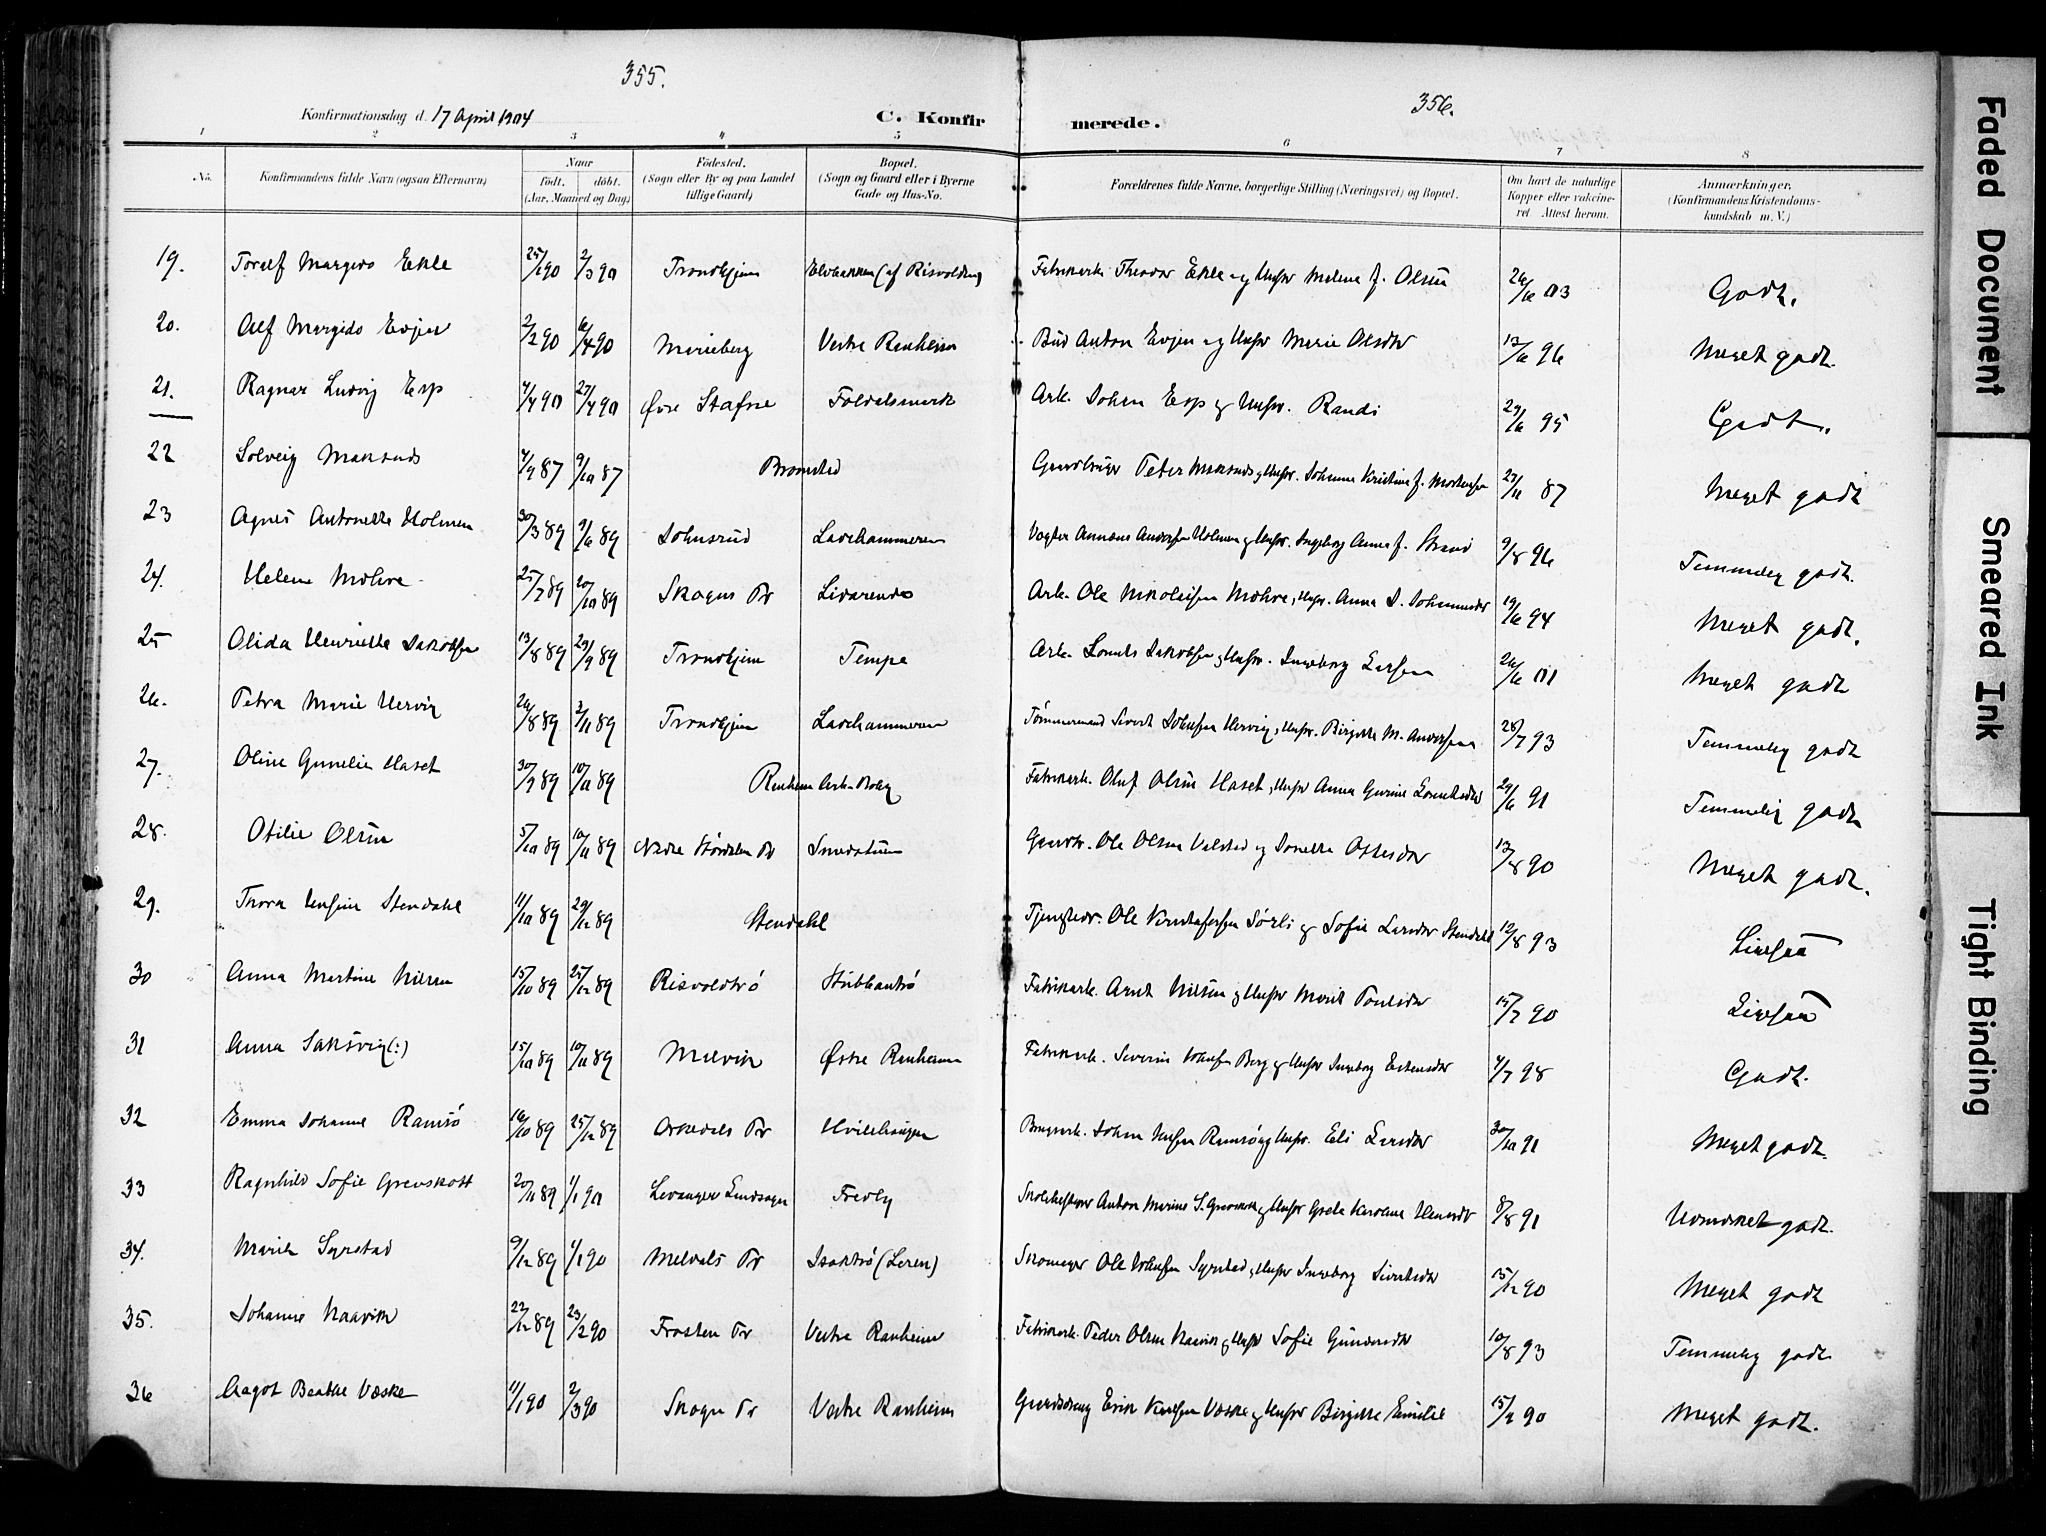 355.
356.
Konfirmationsdag d. 17 April 1904
C. Konfir merede.
1 2 3 4 5 6 7 8
No. Konfirmandens fulde Navn (ogsaa Efternavn) Naar født. døbt. (Aar, Maaned og Dag) Fødested. (Sogn eller By og paa Landet tillige Gaard) Bopæl. (Sogn og Gaard eller i Byerne Gade og Hus-No. Forældrenes fulde Navne, borgerlige Stilling (Næringsvei) og Bopæl. Om havt de naturlige Kopper eller vakcineret. Attest herom. Anmærkninger. (Konfirmandens Kristendomskundskab m. V.)
19. Toralf Margido Ekle 25/1 90 2/3 90 Trondhjem Elvebakken (af Risvolden) Fabrikarb. Theodor Ekle og Hustr Milena f. Olsen 26/6 03 Godt.
20. Alf Margido Evjen 2/2 90 6/4 90 Marieberg Vestre Ranheim Anton Evjen og Hustr Marie Olsdtr 13/6 96 Meget godt.
21. Ragnar Ludvig Esp 4/4 90 27/4 90 Øvre Stafne Arb. Johan Esp og Hustr. Randi 29/6 95 Godt.
22 Solveig 4/9 87 9/10 87 Bromstad Peter og Hustr. Johanna Kristine f. 23/11 87 Meget godt
23 Agnes Antonette Holmen 30/3 89 9/6 89 Johnsrud Ladehammeren Vogter Andersen Holmen og Hustr. Ingeborg Anna f. Strand 9/8 96 Temmelig godt.
24. Helene Mohre 25/7 89 20/10 89 Skogns Pr Arb. Ole Nikolaisen Mohre, Hustr. Anna 19/6 94 Meget godt.
25 Olida Henriette Jakobsen 13/8 89 29/9 89 Trondhjem Tempe Arb. Jakobsen og Hustr. Ingeborg Larsen 26/6 01 Meget godt
26. Petra Marie Hervig 26/8 89 3/11 89 Trondhjem Ladehammeren Tømmermand Sivert Johnsen Hervig, Hustr. Birgitte M. Andersen 28/7 93 Temmelig godt
27. Oline Gunelie Haset 30/9 89 10/11 89 Ranheim Arb.-Bolig Fabrikarb. Oluf Olsen Haset, Hustr Anna Gurine 29/6 91 Temmelig godt
28. Otilie Olsen 5/10 89 10/11 89 Nedre Stördalen Pr Smedstuen Ole Olsen Valstad og 13/8 90 Meget godt.
29. Thora Stendahl 11/10 89 29/12 89 Stendahl Ole Kristofersen Sörli og Sofie Larsdtr Stendahl 12/8 93 Ligesaa
30 Anna Martine Nilsen 15/10 89 25/12 89 Risvoldtrö Stubbantrö Fabrikarb. Arnt Nilsen og Hustr Marit Paulsdtr 15/7 90 Ligesaa
31 Anna Saksvig (:) 15/10 89 10/11 89 Malvik Østre Ranheim Fabrikarb. Severin Johnsen Berg og Hustr Ingeborg Estensdtr 4/7 98 Godt.
32 Emma Johanne Ramsö 16/10 89 25/12 89 Orkedals Pr Johan Ramsö og Hustr. Eli Larsdtr 30/10 91 Meget godt.
33 Ragnhild Sofie Grevskott 20/11 89 1/1 90 Levanger Landsogn Fredly Anton Marius S. Grevskott og Hustr 8/8 91 Udmærket godt.
34. Marit Syrstad 9/12 89 1/1 90 Meldals Pr Isaktrö (Leren) Skomager Ole Johnsen Syrstad og Hustr Ingeborg Sivertsdtr 15/12 90 Meget godt
35. Johanne Naavik 22/12 89 23/2 90 Frosten Pr Vestre Ranheim Fabrikarb. Peder Olsen Naavik og Hustr Sofie Gundersdtr 10/8 93 Temmelig godt
36 Aagot Beatke Væske 11/1 90 2/3 90 Skogn Pr Vestre Ranheim Erik Væske og Hustr Birgitte Emilie 15/2 90 Meget godt.
Faded Document
Smeared Ink
Tight Binding